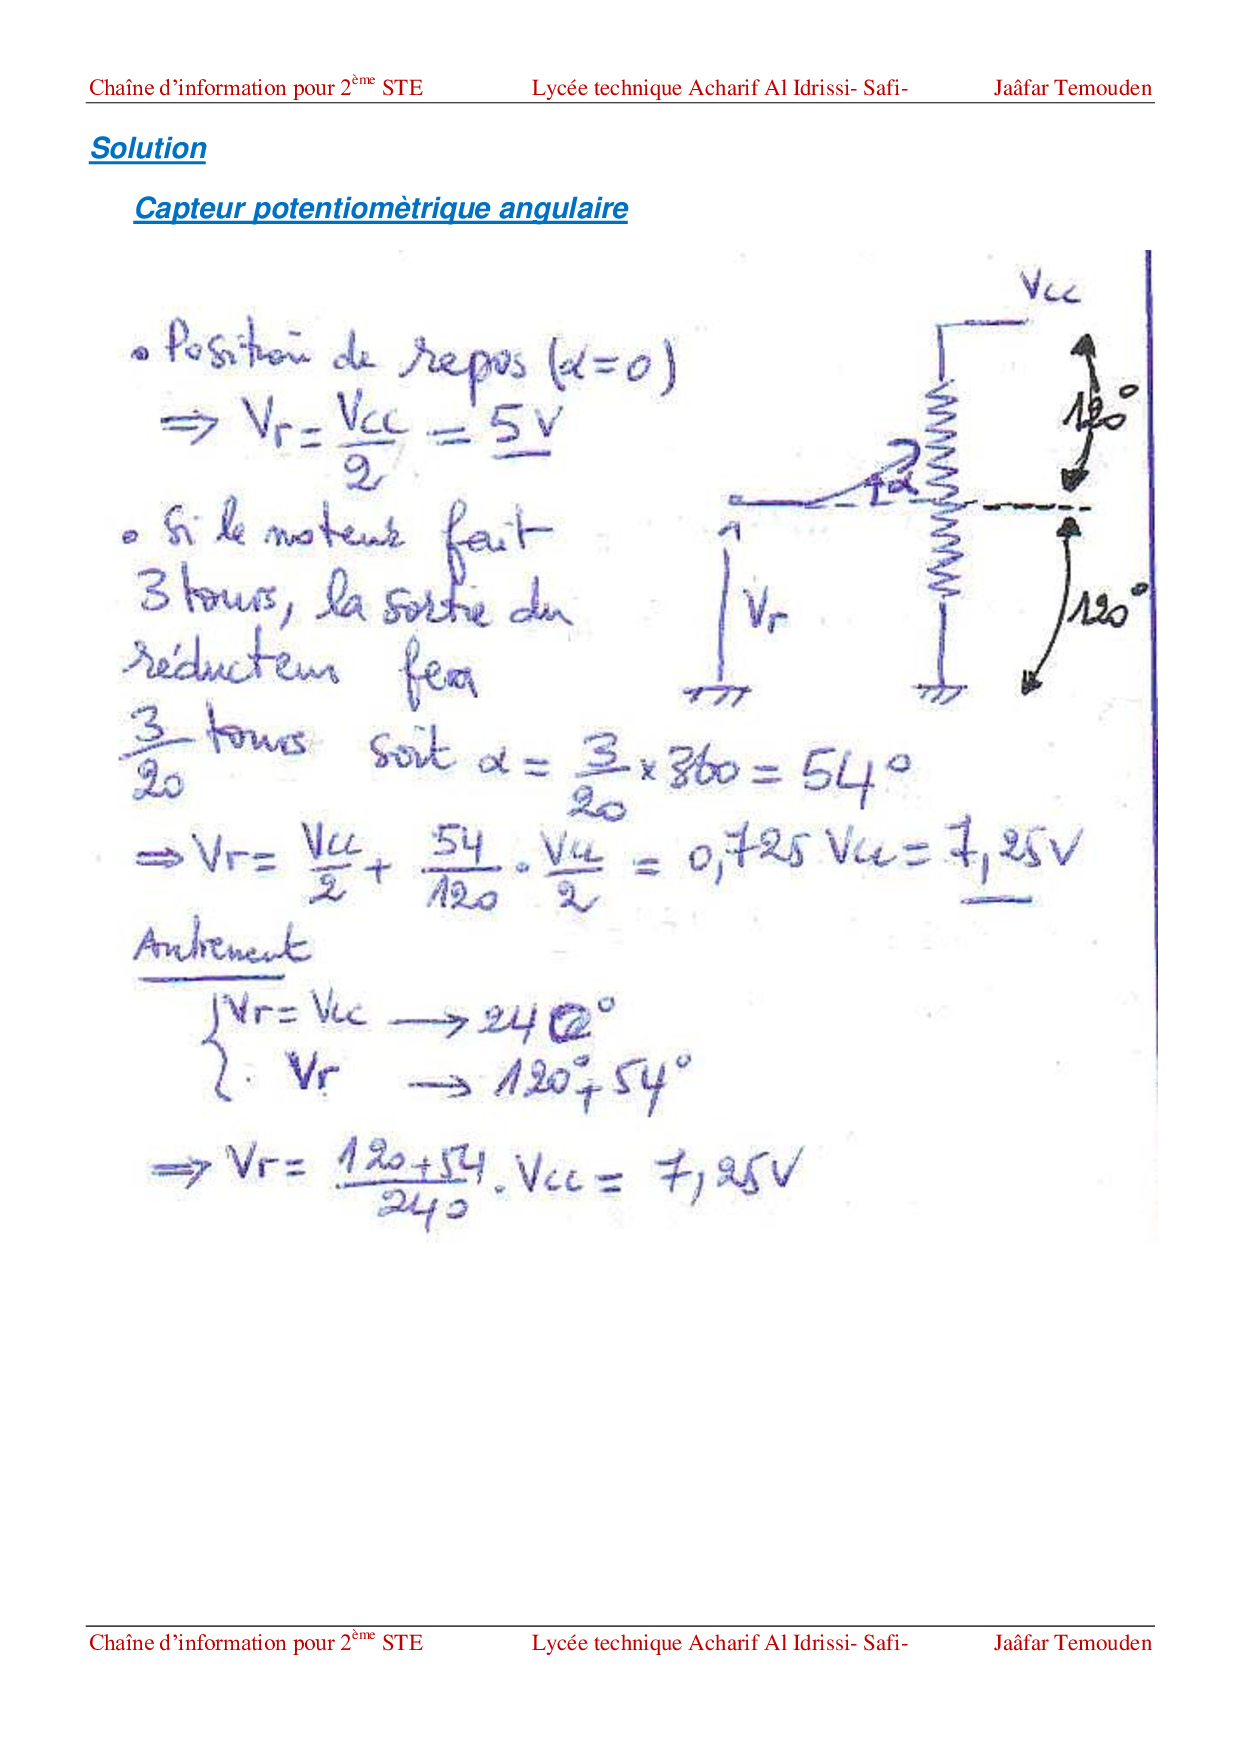 Chaîne d’information pour 2ème STE Lycée technique Acharif Al Idrissi- Safi- Jaâfar Temouden
Solution
Capteur potentiomètrique angulaire
Vcc
• Position de repos (α=0)
⇒ Vr = Vcc/2 = 5V
120°
α
• Si le moteur fait
3 tours, la sortie du
réducteur fera
Vr
120°
3/20 tours soit α = 3/20 × 360 = 54°
⇒ Vr = Vcc/2 + 54/120 . Vcc/2 = 0,725 Vcc = 7,25V
Autrement
{ Vr = Vcc → 240°
Vr → 120°+54°
⇒ Vr = 120+54/240 . Vcc = 7,25V
Chaîne d’information pour 2ème STE Lycée technique Acharif Al Idrissi- Safi- Jaâfar Temouden